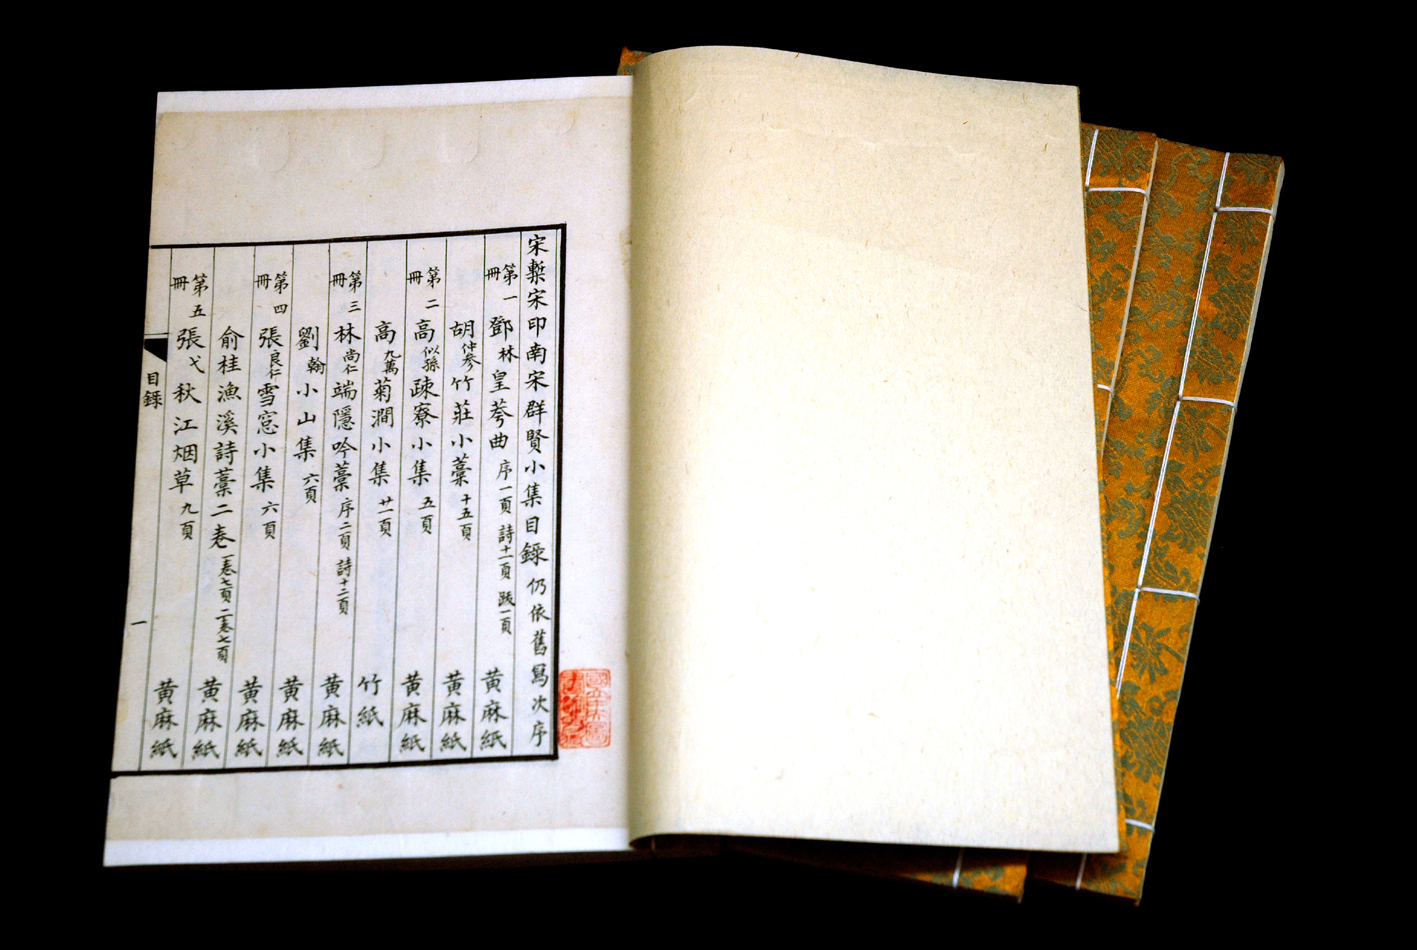 宋槧宋印南宋群賢小集目錄 仍依舊寫次序
第一冊 鄧林 皇荂曲 序一頁 詩十二頁 跋一頁 黃麻紙
胡仲參 竹莊小藁 十五頁 黃麻紙
第二冊 高似孫 疎寮小集 五頁 黃麻紙
高九萬 菊澗小集 廿一頁 竹紙
第三冊 林尚仁 端隱吟藁 序二頁 詩十二頁 黃麻紙
劉翰 小山集 六頁 黃麻紙
第四冊 張良仁 雪窓小集 六頁 黃麻紙
俞桂 漁溪詩藁二卷 一卷七頁 二卷七頁 黃麻紙
第五冊 張弋 秋江烟草 九頁 黃麻紙
目錄
一